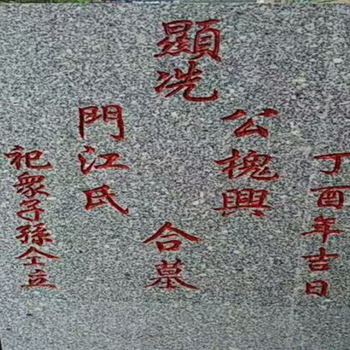 丁酉年吉日
顯冼
公槐興
門江氏
合墓
祀衆子孫仝立